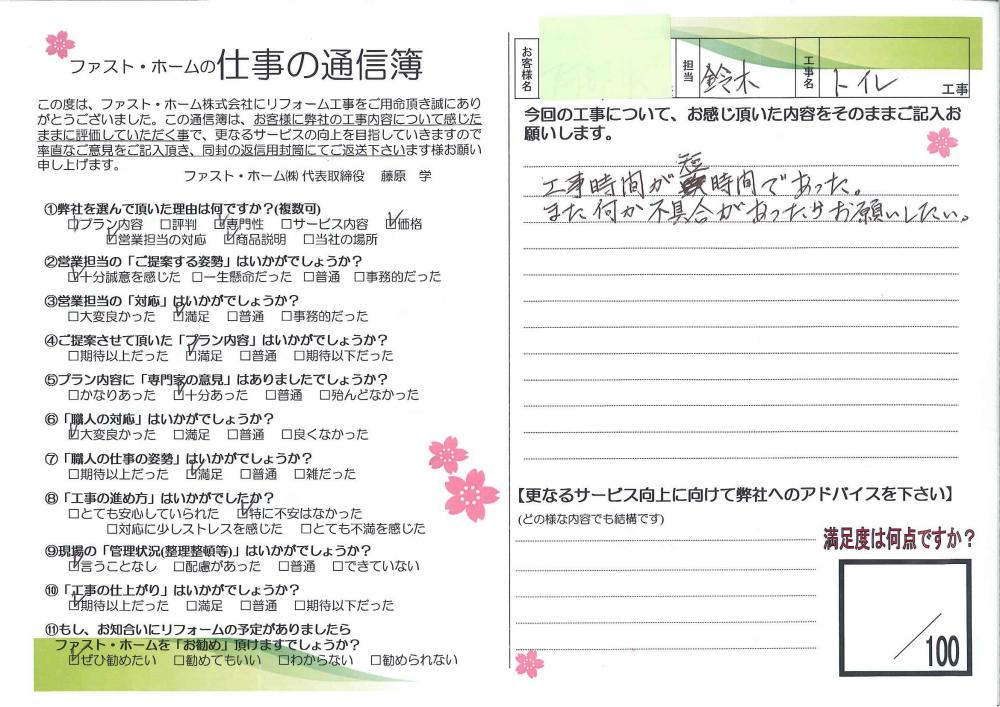 ファスト・ホームの仕事の通信簿
この度は、ファスト・ホーム株式会社にリフォーム工事をご用命頂き誠にあり
がとうございました。この通信簿は、お客様に弊社の工事内容について感じた
ままに評価していただく事で、更なるサービスの向上を目指していきますので
率直なご意見をご記入頂き、同封の返信用封筒にてご返送下さいます様お願い
申し上げます。
ファスト・ホーム㈱ 代表取締役 藤原 学
①弊社を選んで頂いた理由は何ですか?(複数可)
☑プラン内容 □評判 ☑専門性 □サービス内容 ☑価格
☑営業担当の対応 ☑商品説明 □当社の場所
②営業担当の「ご提案する姿勢」はいかがでしょうか?
☑十分誠意を感じた □一生懸命だった □普通 □事務的だった
③営業担当の「対応」はいかがでしょうか?
□大変良かった ☑満足 □普通 □事務的だった
④ご提案させて頂いた「プラン内容」はいかがでしょうか?
□期待以上だった ☑満足 □普通 □期待以下だった
⑤プラン内容に「専門家の意見」はありましたでしょうか?
□かなりあった ☑十分あった □普通 □殆んどなかった
⑥「職人の対応」はいかがでしょうか?
☑大変良かった □満足 □普通 □良くなかった
⑦「職人の仕事の姿勢」はいかがでしょうか?
□期待以上だった ☑満足 □普通 □雑だった
⑧「工事の進め方」はいかがでしたか?
□とても安心していられた ☑特に不安はなかった
□対応に少しストレスを感じた □とても不満を感じた
⑨現場の「管理状況(整理整頓等)」はいかがでしょうか?
☑言うことなし □配慮があった □普通 □できていない
⑩「工事の仕上がり」はいかがでしょうか?
☑期待以上だった □満足 □普通 □期待以下だった
⑪もし、お知合いにリフォームの予定がありましたら
ファスト・ホームを「お勧め」頂けますでしょうか?
☑ぜひ勧めたい □勧めてもいい □わからない □勧められない
お客様名 担当 鈴木 工事名 トイレ 工事
今回の工事について、お感じ頂いた内容をそのままご記入お
願いします。
工事時間が短時間であった。
また何か不具合があったらお願いしたい。
【更なるサービス向上に向けて弊社へのアドバイスを下さい】
(どの様な内容でも結構です)
満足度は何点ですか?
/100